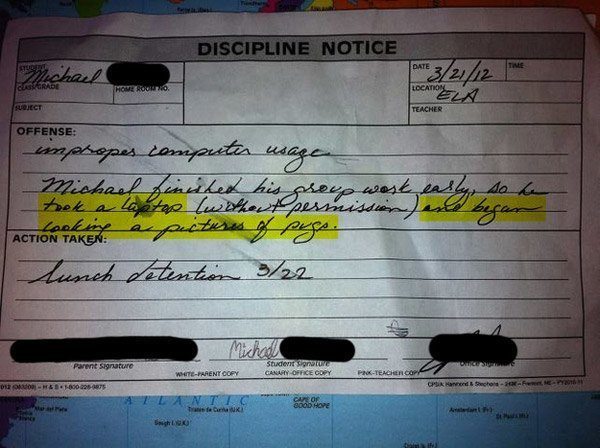 DISCIPLINE NOTICE
STUDENT
Michael
DATE 3/21/12 TIME
CLASS/GRADE HOME ROOM NO.
LOCATION ELA
SUBJECT
TEACHER
OFFENSE:
improper computer usage
Michael finished his group work early, so he
took a laptop (without permission) and began
looking a pictures of pugs.
ACTION TAKEN:
lunch detention 3/22
Michael
Parent Signature Student Signature Office Signature
WHITE-PARENT COPY CANARY-OFFICE COPY PINK-TEACHER COPY
ATLANTIC
CAPE OF
GOOD HOPE
Mar del Plata
Tristan da Cunha (U.K.)
Gough I. (U.K.)
Amsterdam I. (Fr.)
St. Paul I. (Fr.)